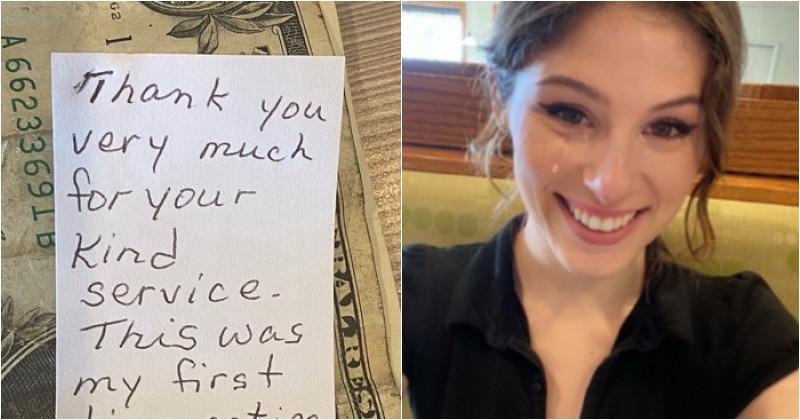 A 66233691 B
1
Thank you
very much
for your
kind
service.
This was
my first